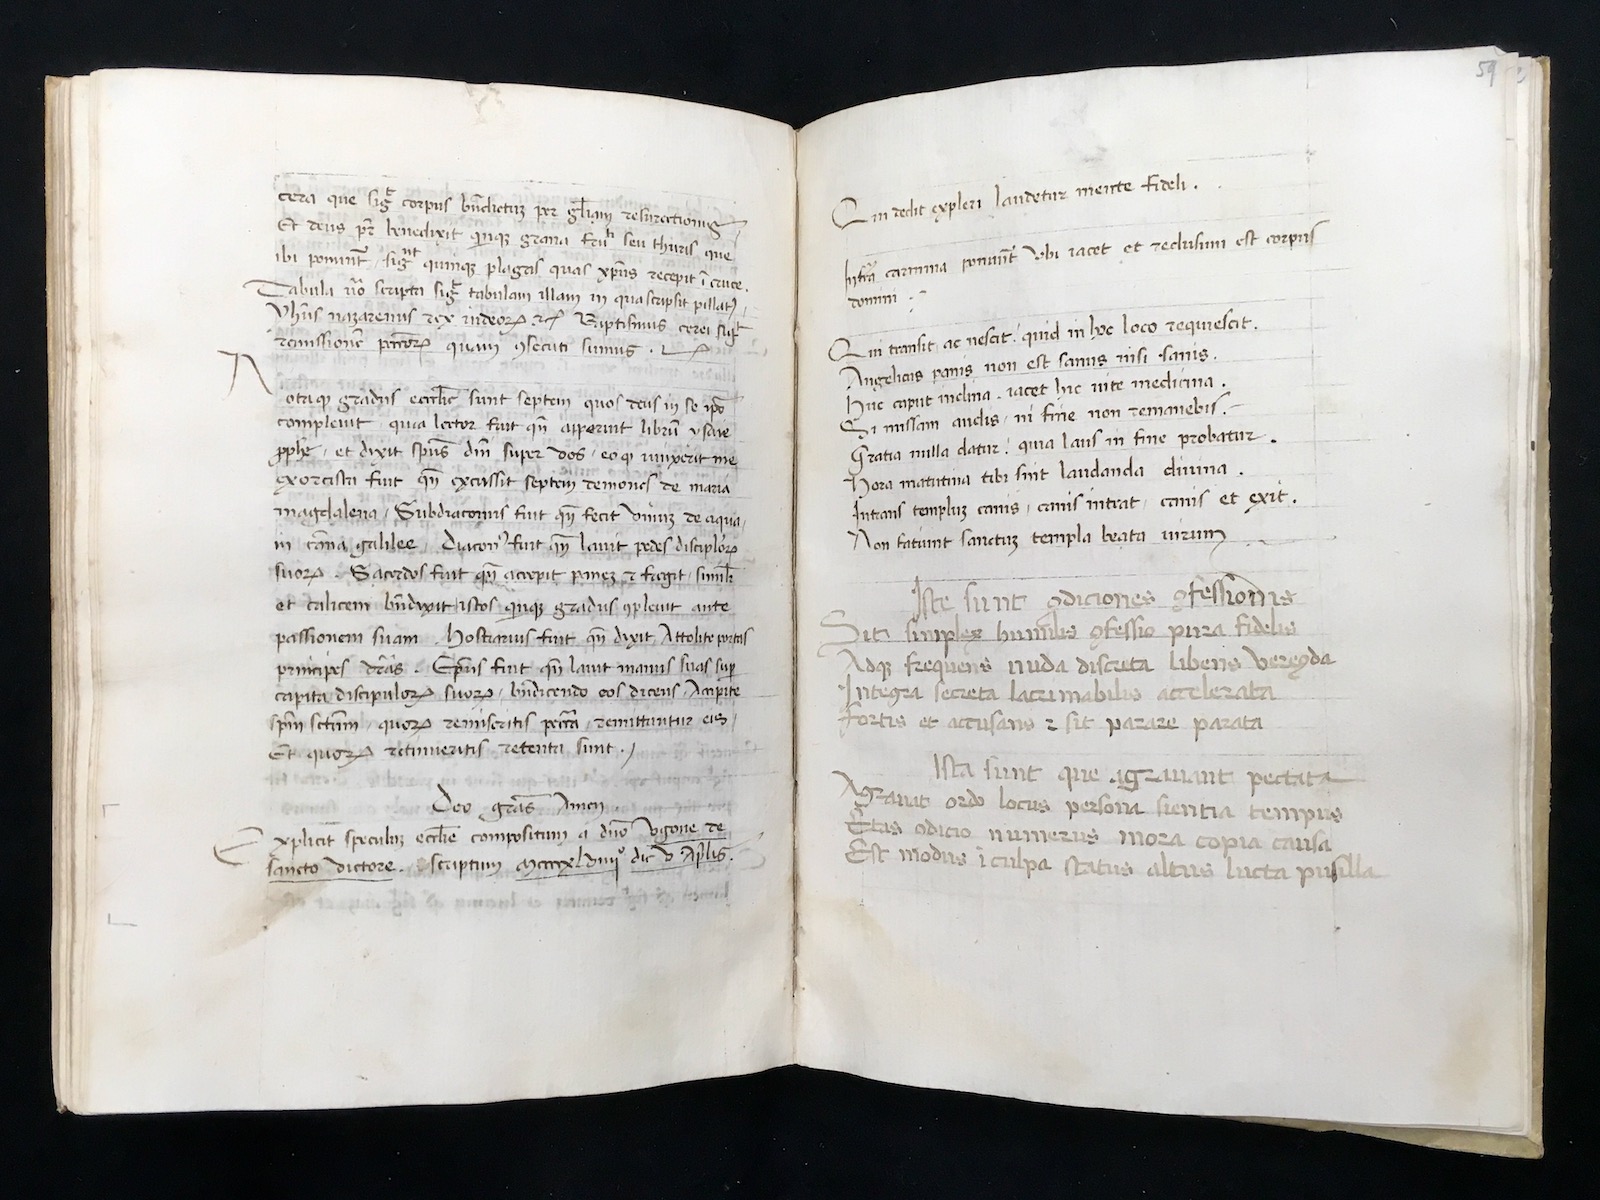 cera que sigᵗ corpus bn̄dictuꝫ per gl̄iam resurectionis
Et deus pr̄ benedixit quinqꝫ grana seu thuris que
ibi ponunt̄ / signᵗ quinqꝫ plagas quas xp̄us recepit ī cruce.
Tabula v̄o scripta sigᵗ tabulam illam in qua scripsit pillatꝰ /
nazarenus rex iudeoꝝ Baptismus cerei sigᵗ
remissionē peccōꝝ quam ꝯsecuti sumus .
Nota qꝫ gradus eccl̄ie sunt septem quos deus in se ip̄o
compleuit / quia lector fuit qn̄ apperuit librū ysaie
ꝓphē / et dixit sp̄us dn̄i super vos / eo qꝫ iunxerit me
exorcista fuit qn̄ excussit septem demones de maria
magdalena / Subdiaconus fuit qn̄ fecit vinuꝫ de aqua /
in cana galilee / Diaconꝰ fuit qn̄ lauit pedes discipl̄oꝝ
suoꝝ . Sacerdos fuit qn̄ accepit paneꝫ ⁊ fregit / simil̄r
et calicem bn̄dixit / istos quinqꝫ gradus ꝯpleuit ante
passionem suam . hostiarius fuit qn̄ dixit / Attolite portas
principes vr̄as . Ep̄us fuit qn̄ lauit manus suas suꝑ
capita discipuloꝝ suoꝝ / bn̄dicendo eos dicens / Accipite
sp̄m sctūm / quoꝝ remiseritis pccā / remittuntur eis /
Et quoꝝ retinueritis retenta sunt . /
Deo gr̄as Amen
Explicit speculuꝫ eccl̄ie compositum a dn̄o vgone de
sancto victore . scriptum die v apl̄is .
59
Qui dedit expleri laudetur mente fideli .
Infrā carmina ponunt̄ vbi iacet et reclusum est corpus
domini .
Qui transit ac nescit / quid in hoc loco requiescit .
Angelicus panis non est sanus nisi sanis .
Huc caput inclina . iacet hic vite medicina .
Si missam audis / ni fine non remanebis .
Gratia nulla datur / quia laus in fine probatur .
Hora matutina tibi sint laudanda diuina .
Intrans templuꝫ canis / canis intrat / canis et exit .
Non faciunt sanctuꝫ templa beata uirum
Iste sunt ꝯdiciones ꝯfessionis
Sit simplex humilis ꝯfessio pura fidelis
Adqꝫ frequens nuda discreta libens verecūda
Integra secreta lacrimabilis accelerata
Fortis et accusans ⁊ sit parare parata
Ista sunt que agrauant peccata
Agrauat ordo locus persona sientia tempus
Etas ꝯdicio numerus mora copia causa
Est modus ī culpa status altus lucta pusilla